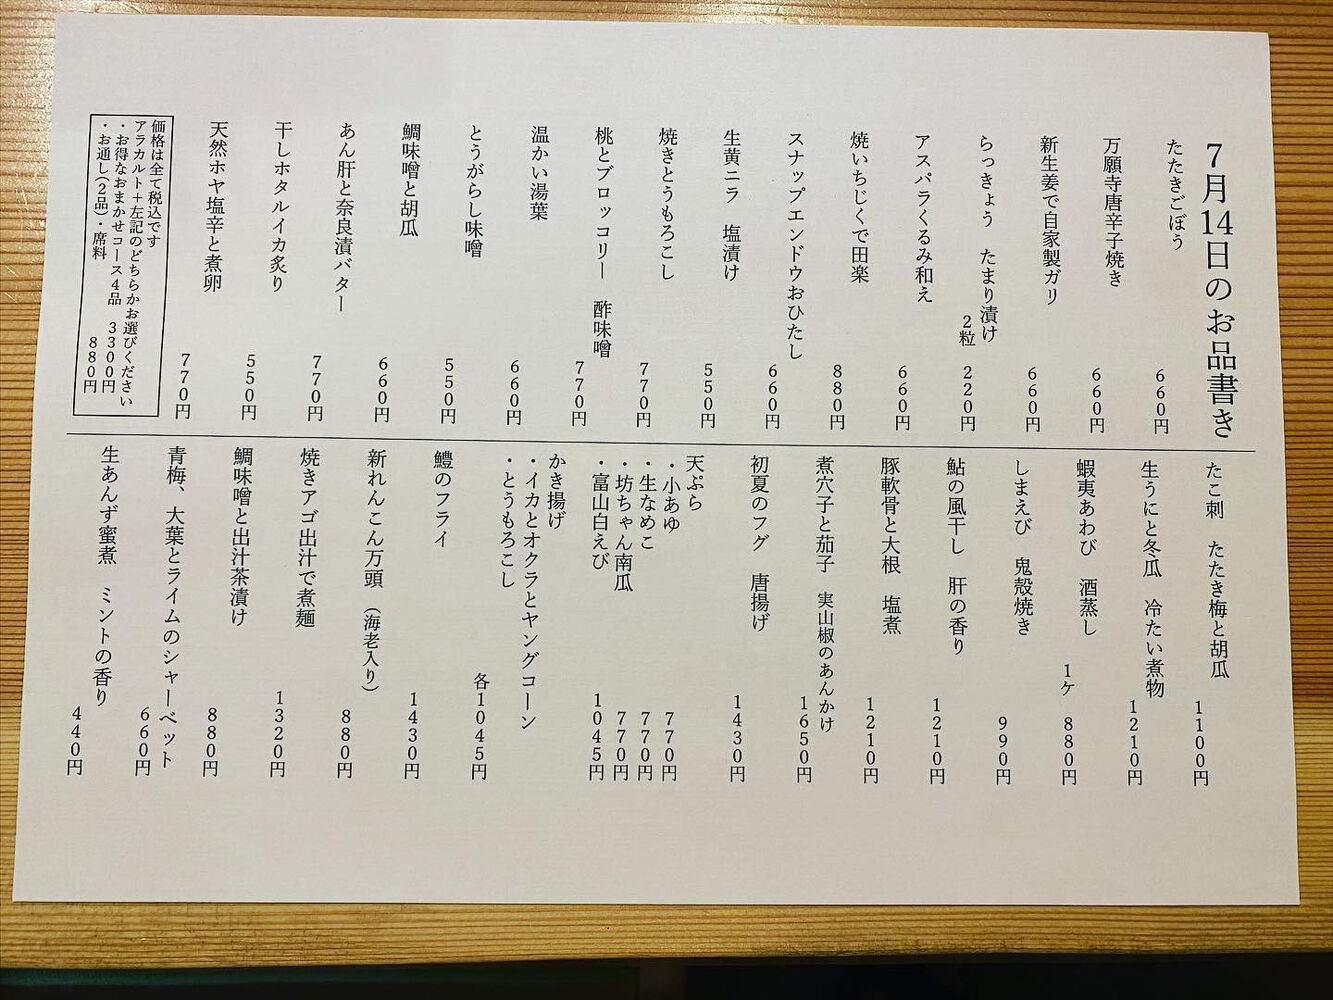 7月14日のお品書き
たたきごぼう
660円
万願寺唐辛子焼き
660円
新生姜で自家製ガリ
660円
らっきょう たまり漬け
2粒 220円
アスパラくるみ和え
660円
焼いちじくで田楽
880円
スナップエンドウおひたし
660円
生黄ニラ 塩漬け
550円
焼きとうもろこし
770円
桃とブロッコリー 酢味噌
770円
温かい湯葉
660円
とうがらし味噌
550円
鯛味噌と胡瓜
660円
あん肝と奈良漬バター
770円
干しホタルイカ炙り
550円
天然ホヤ塩辛と煮卵
770円
価格は全て税込です
アラカルト+左記のどちらかお選びください
・お得なおまかせコース4品 3300円
・お通し(2品)・席料 880円
たこ刺 たたき梅と胡瓜
1100円
生うにと冬瓜 冷たい煮物
1210円
蝦夷あわび 酒蒸し
1ケ 880円
しまえび 鬼殻焼き
990円
鮎の風干し 肝の香り
1210円
豚軟骨と大根 塩煮
1210円
煮穴子と茄子 実山椒のあんかけ
1650円
初夏のフグ 唐揚げ
1430円
天ぷら
・小あゆ 770円
・生なめこ 770円
・坊ちゃん南瓜 770円
・富山白えび 1045円
かき揚げ
・イカとオクラとヤングコーン
・とうもろこし
各1045円
鱧のフライ
1430円
新れんこん万頭 (海老入り)
880円
焼きアゴ出汁で煮麺
1320円
鯛味噌と出汁茶漬け
880円
青梅、大葉とライムのシャーベット
660円
生あんず蜜煮 ミントの香り
440円